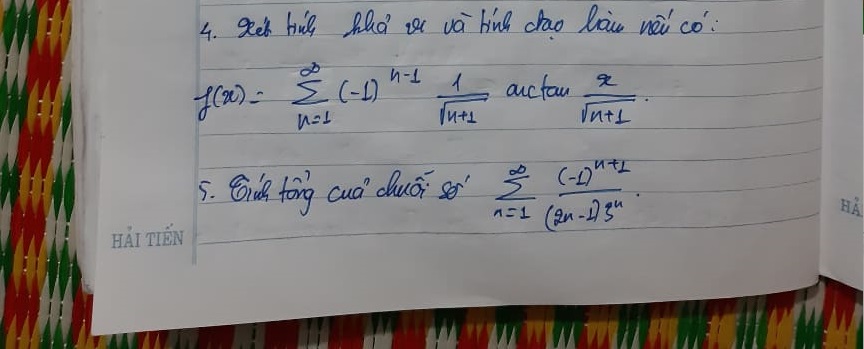 4. Xét tính khả vi và tính đạo hàm nếu có:
f(x) = ∑_{n=1}^{∞} (-1)^{n-1} \frac{1}{\sqrt{n+1}} arctan \frac{x}{\sqrt{n+1}}.
5. Tính tổng của chuỗi số ∑_{n=1}^{∞} \frac{(-1)^{n+1}}{(2n-1)3^n}.
HẢI TIẾN
HẢ